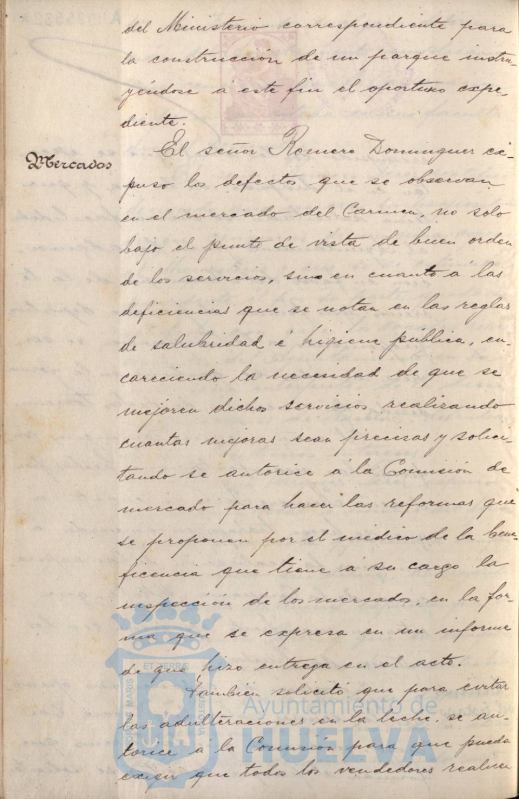 del Ministerio correspondiente para
la construcción de un parque instru-
yéndose á este fin el oportuno expe-
diente.
Mercados
El señor Romero Dominguez ex-
puso los defectos que se observan
en el mercado del Carmen, no solo
bajo el punto de vista de buen orden
de los servicios, sino en cuanto á las
deficiencias que se notan en las reglas
de salubridad é higiene pública, en-
careciendo la necesidad de que se
mejoren dichos servicios realizando
cuantas mejoras sean precisas y solici-
tando se autorice á la Comisión de
mercado para hacer las reformas que
se proponen por el médico de la bene-
ficencia que tiene á su cargo la
inspección de los mercados, en la for-
ma que se expresa en un informe
de que hizo entrega en el acto.
Tambien solicitó que para evitar
las adulteraciones en la leche, se au-
torice á la Comisión para que pueda
exijir que todos los vendedores realicen
Ayuntamiento de
HUELVA